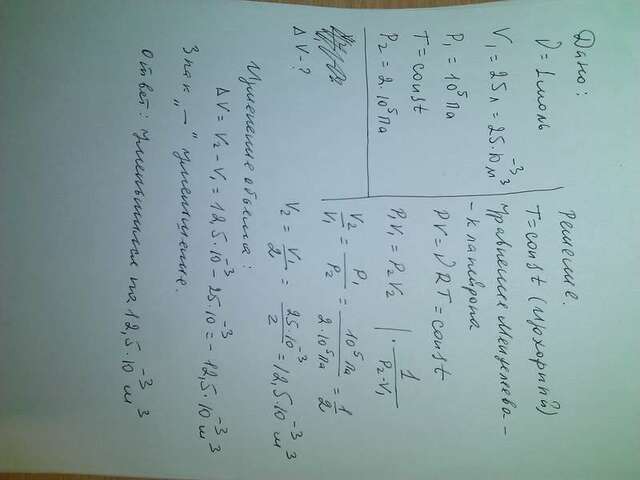 Дано:
ν = 1 моль
V₁ = 25 л = 25·10⁻³ м³
P₁ = 10⁵ Па
T = const
P₂ = 2·10⁵ Па
ΔV - ?
Решение.
T = const (изохорный)
уравнение Менделеева-
- Клапейрона
PV = νRT = const
P₁V₁ = P₂V₂ | · 1/(P₂·V₁)
V₂/V₁ = P₁/P₂ = 10⁵ Па/2·10⁵ Па = 1/2
V₂ = V₁/2 = 25·10⁻³/2 = 12,5·10⁻³ м³
Изменение объема:
ΔV = V₂ - V₁ = 12,5·10⁻³ - 25·10⁻³ = -12,5·10⁻³ м³
Знак „-" уменьшение.
Ответ: уменьшился на 12,5·10⁻³ м³